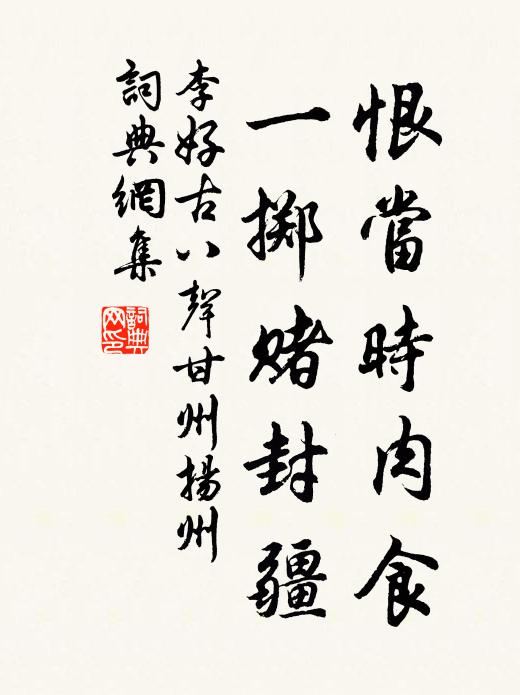 恨當時肉食
一掷赌封疆
李好古八聲甘州揚州
詞典網集
詞典网印